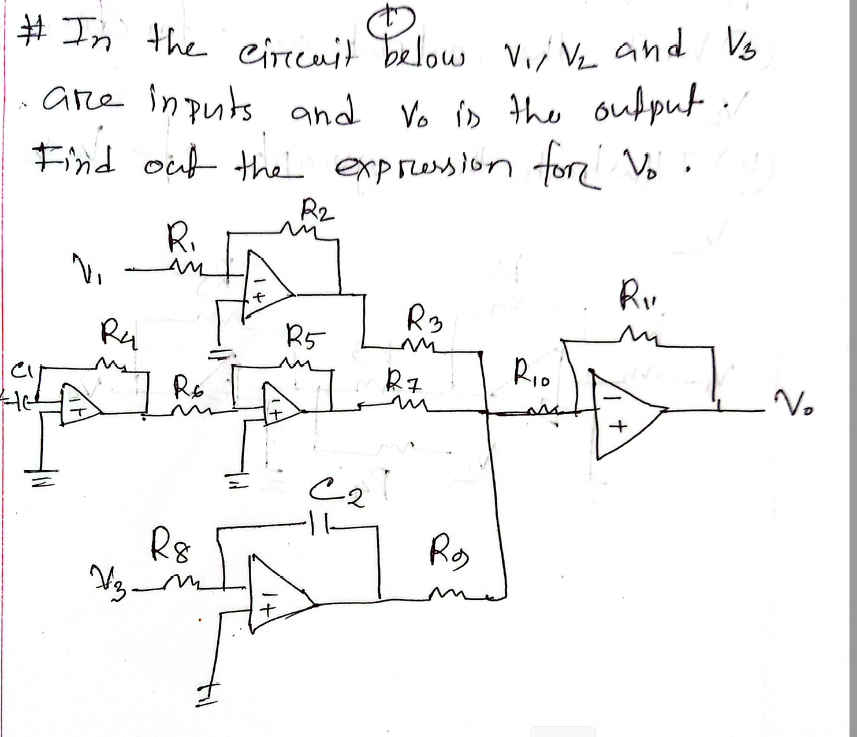 ①
# In the circuit below V₁, V₂ and V₃
are inputs and V₀ is the output.
Find out the expression for V₀.
R₂
R₁
V₁
-
+
R₁₁
R₃
R₄
R₅
C₁
R₆
R₇
R₁₀
-
+
-
+
-
+
V₀
C₂
R₈
R₉
V₃
-
+